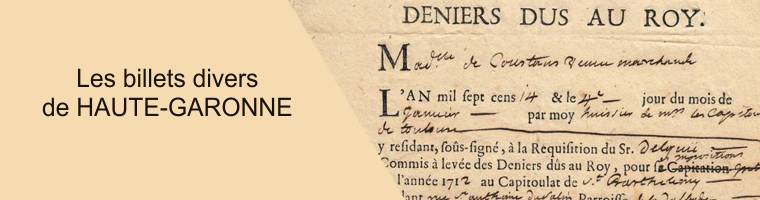 Les billets divers
de HAUTE-GARONNE
DENIERS DUS AU ROY.
Mad.elle de Coustans veuve marchande
L'AN mil sept cens 14 & le 4e jour du mois de
Janvier par moy huissier de mrs les Capitou
de toulouse
y residant, soûs-signé, à la Requisition du Sr. Delquié
Commis à levée des Deniers dûs au Roy, pour sa Capitation
l'année 1712 au Capitoulat de St. Barthelemy